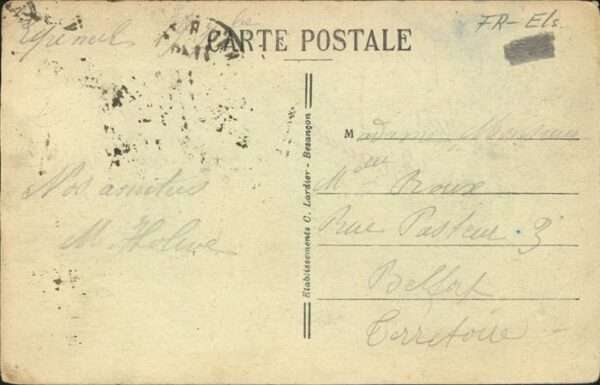 CARTE POSTALE
FR-Els.
Nos amitiés
M
Etablissements C. Lardier - Besançon
Madame Monsieur
ou
M Roux
Rue Pasteur 3
Belfort
Terretoire